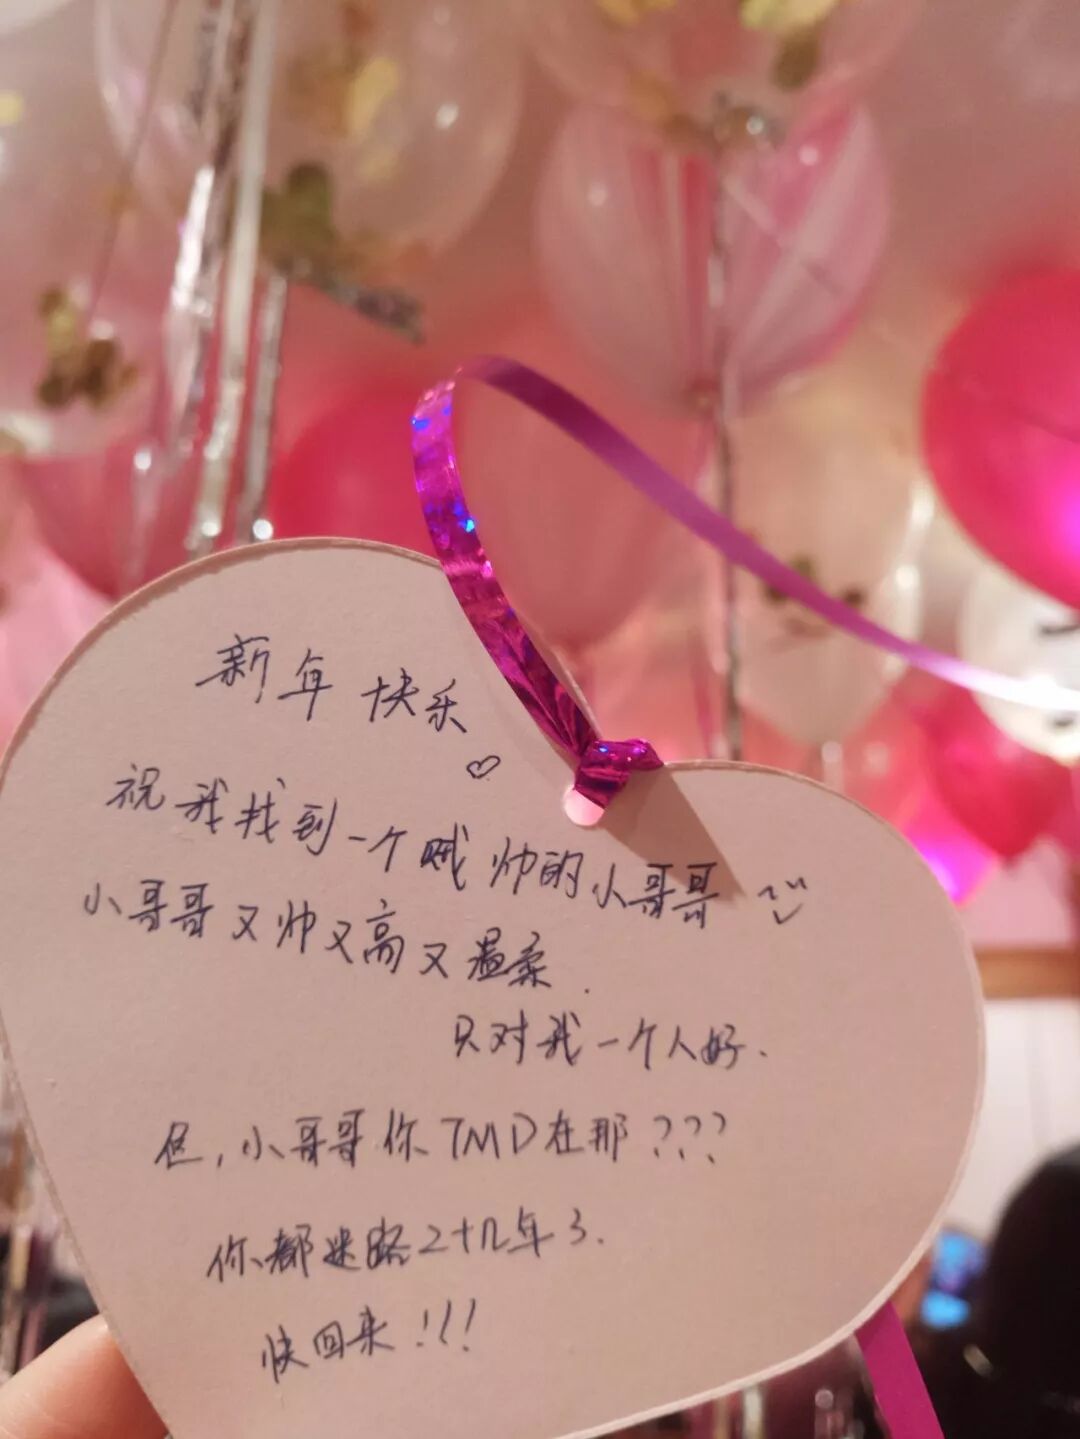 新年快乐
祝我找到一个贼帅的小哥哥
小哥哥又帅又高又温柔.
只对我一个人好.
但,小哥哥你TMD在那???
你都迷路2十几年了.
快回来!!!